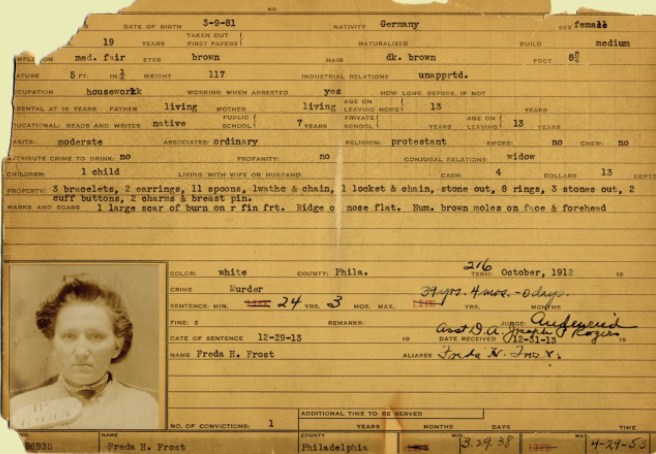 NO
DATE OF BIRTH 3-9-81 NATIVITY Germany SEX female
19 YEARS TAKEN OUT FIRST PAPERS NATURALIZED BUILD medium
med. fair EYES brown HAIR dk. brown FOOT
5 FT. IN. ½ WEIGHT 117 INDUSTRIAL RELATIONS unapprtd.
CUPATION housework WORKING WHEN ARRESTED yes HOW LONG BEFORE, IF NOT
ARENTAL AT 16 YEARS FATHER living MOTHER living AGE ON LEAVING HOME 13 YEARS
DUCATIONAL: READS AND WRITES native PUBLIC SCHOOL 7 YEARS PRIVATE SCHOOL YEARS AGE ON LEAVING 13 YEARS
ABITS: moderate ASSOCIATES: ordinary RELIGION: protestant SMOKE: no CHEW: no
TTRIBUTE CRIME TO DRINK: no PROFANITY: no CONJUGAL RELATIONS: widow
CHILDREN: 1 child LIVING WITH WIFE OR HUSBAND: CASH: 4 DOLLARS 13 CENTS
PROPERTY: 3 bracelets, 2 earrings, 11 spoons, 1wathc & chain, 1 locket & chain, stone out, 8 rings, 3 stones out, 2
cuff buttons, 2 charms & breast pin.
MARKS AND SCARS 1 large scar of burn on r fin frt. Ridge o nose flat. Num. brown moles on face & forehead
COLOR: white COUNTY: Phila. 216 TERM: October, 1912 19
CRIME Murder 39 yrs. 4 mos. - 0 days.
SENTENCE: MIN. 24 YRS. 3 MOS. MAX. MONTHS
FINE: $ REMARKS: JUDGE: Audenried
Asst D.A. Joseph Rogers
DATE OF SENTENCE 12-29-13 19 DATE RECEIVED 12-31-13 19
NAME Freda H. Frost ALIASES Freda H. Frost.
ADDITIONAL TIME TO BE SERVED
NO. OF CONVICTIONS: 1 YEARS MONTHS DAYS TIME
6938 NAME Freda H. Frost COUNTY Philadelphia MIN. 3.29.38 MAX. 4-29-53